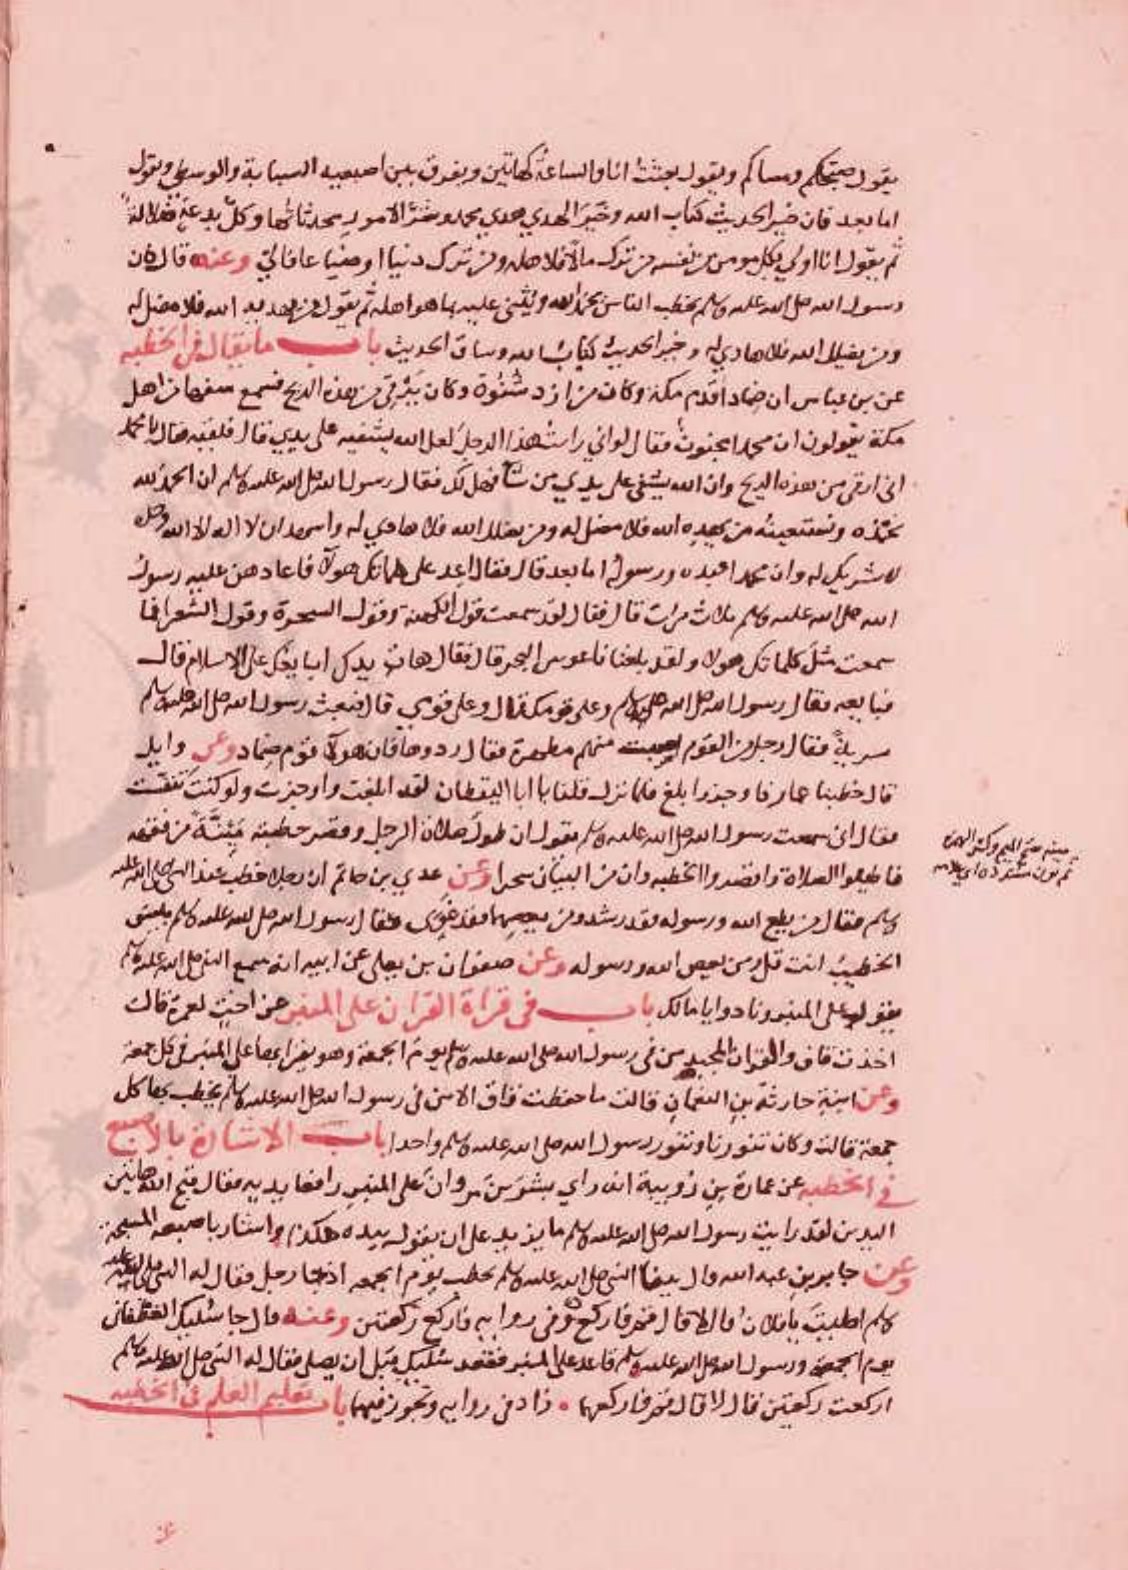 يقول صبحكم ومساكم ويقول بعثت انا والساعة كهاتين ويفرق بين اصبعيه السبابة والوسطي ويقول
اما بعد فان خير الحديث كتاب الله وخير الهدي هدي محمد وشر الامور محدثاتها وكل بدعة ضلالة
ثم يقول انا اولي بكل مومن من نفسه من ترك مالا فلاهله ومن ترك دينا او ضياعا فالي وعنه قال كان
رسول الله صلى الله عليه وسلم يخطب الناس يحمد الله ويثني عليه بما هو اهله ثم يقول من يهديه الله فلا مضل له
ومن يضلل الله فلا هادي له وخير الحديث كتاب الله وساق الحديث باب ما يقال في الخطبه
عن بن عباس ان ضمادا قدم مكة وكان من ازد شنوة وكان يرقي من هذه الريح فسمع سفها من اهل
مكة يقولون ان محمدا مجنون فقال لو اني رايت هذا الرجل لعل الله يشفيه على يدي قال فلقيه فقال يا محمد
اني ارقي من هذه الريح وان الله يشفي على يدي من شا فهل لك فقال رسول الله صلى الله عليه وسلم ان الحمد لله
نحمده ونستعينه من يهده الله فلا مضل له ومن يضلل الله فلا هادي له واشهد ان لا اله الا الله وحده
لا شريك له وان محمدا عبده ورسوله اما بعد قال فقال اعد علي كلماتك هولا فاعادهن عليه رسول
الله صلى الله عليه وسلم ثلاث مرات قال فقال لقد سمعت قول الكهنة وقول السحرة وقول الشعرا فما
سمعت مثل كلماتك هولا ولقد بلغنا ناعوس البحر قال فقال هات يدك ابايعك على الاسلام قال
فبايعه فقال رسول الله صلى الله عليه وسلم وعلى قومك قال وعلى قومي قال فبعث رسول الله صلى الله عليه وسلم
سرية فقال رجل من القوم اصبت منهم مطهرة فقال ردوها فان هولا قوم ضماد وعن وايل
قال خطبنا عمار فاوجز وابلغ فلما نزل قلنا يا ابا اليقظان لقد ابلغت واوجزت ولو كنت تنفست
فقال اني سمعت رسول الله صلى الله عليه وسلم يقول ان طول صلاة الرجل وقصر خطبته مئنة من فقهه
فاطيلوا الصلاة واقصروا الخطبه وان من البيان سحرا وعن عدي بن حاتم ان رجلا خطب عند النبي صلى الله عليه
وسلم فقال من يطع الله ورسوله فقد رشد ومن يعصهما فقد غوى فقال رسول الله صلى الله عليه وسلم بئس
الخطيب انت قل ومن يعص الله ورسوله وعن صفوان بن يعلى عن ابيه انه سمع النبي صلى الله عليه وسلم
يقول على المنبر ونادوا يا مالك باب في قراة القران على المنبر عن اخت لعمرة قالت
اخذت قاف والقران المجيد من في رسول الله صلى الله عليه وسلم يوم الجمعة وهو يقرا بها على المنبر في كل جمعة
وعن ابنة حارثة بن النعمان قالت ما حفظت قاف الا من في رسول الله صلى الله عليه وسلم يخطب بها كل
جمعة قالت وكان تنورنا وتنور رسول الله صلى الله عليه وسلم واحدا باب الاشارة بالاصبع
في الخطبه عن عمارة بن رويبة انه راي بشر بن مروان على المنبر رافعا يديه فقال قبح الله هاتين
اليدين لقد رايت رسول الله صلى الله عليه وسلم ما يزيد على ان يقول بيده هكذا واشار باصبعه المسبحة
وعن جابر بن عبد الله قال بينما النبي صلى الله عليه وسلم يخطب يوم الجمعه اذ جا رجل فقال له النبي صلى الله عليه
وسلم اصليت يا فلان قال لا قال قم فاركع وفي روايه فاركع ركعتين وعنه قال جا سليك الغطفاني
يوم الجمعة ورسول الله صلى الله عليه وسلم قاعد على المنبر فقعد سليك قبل ان يصلي فقال له النبي صلى الله عليه وسلم
اركعت ركعتين قال لا قال قم فاركعهما زاد في روايه وتجوز فيهما باب تعليم العلم في الخطبه
مئنة بفتح الميم وكسر الهمزة
ثم نون مشددة اي علامه